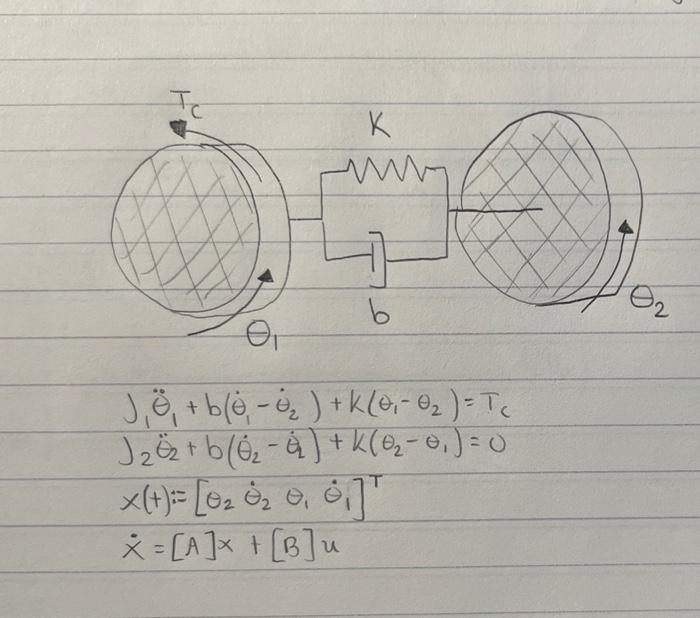 T_c
K
b
θ₁
θ₂
J₁θ̈₁ + b(θ̇₁ - θ̇₂) + k(θ₁ - θ₂) = T_c
J₂θ̈₂ + b(θ̇₂ - θ̇₁) + k(θ₂ - θ₁) = 0
x(t) := [θ₂ θ̇₂ θ₁ θ̇₁]ᵀ
ẋ = [A]x + [B]u